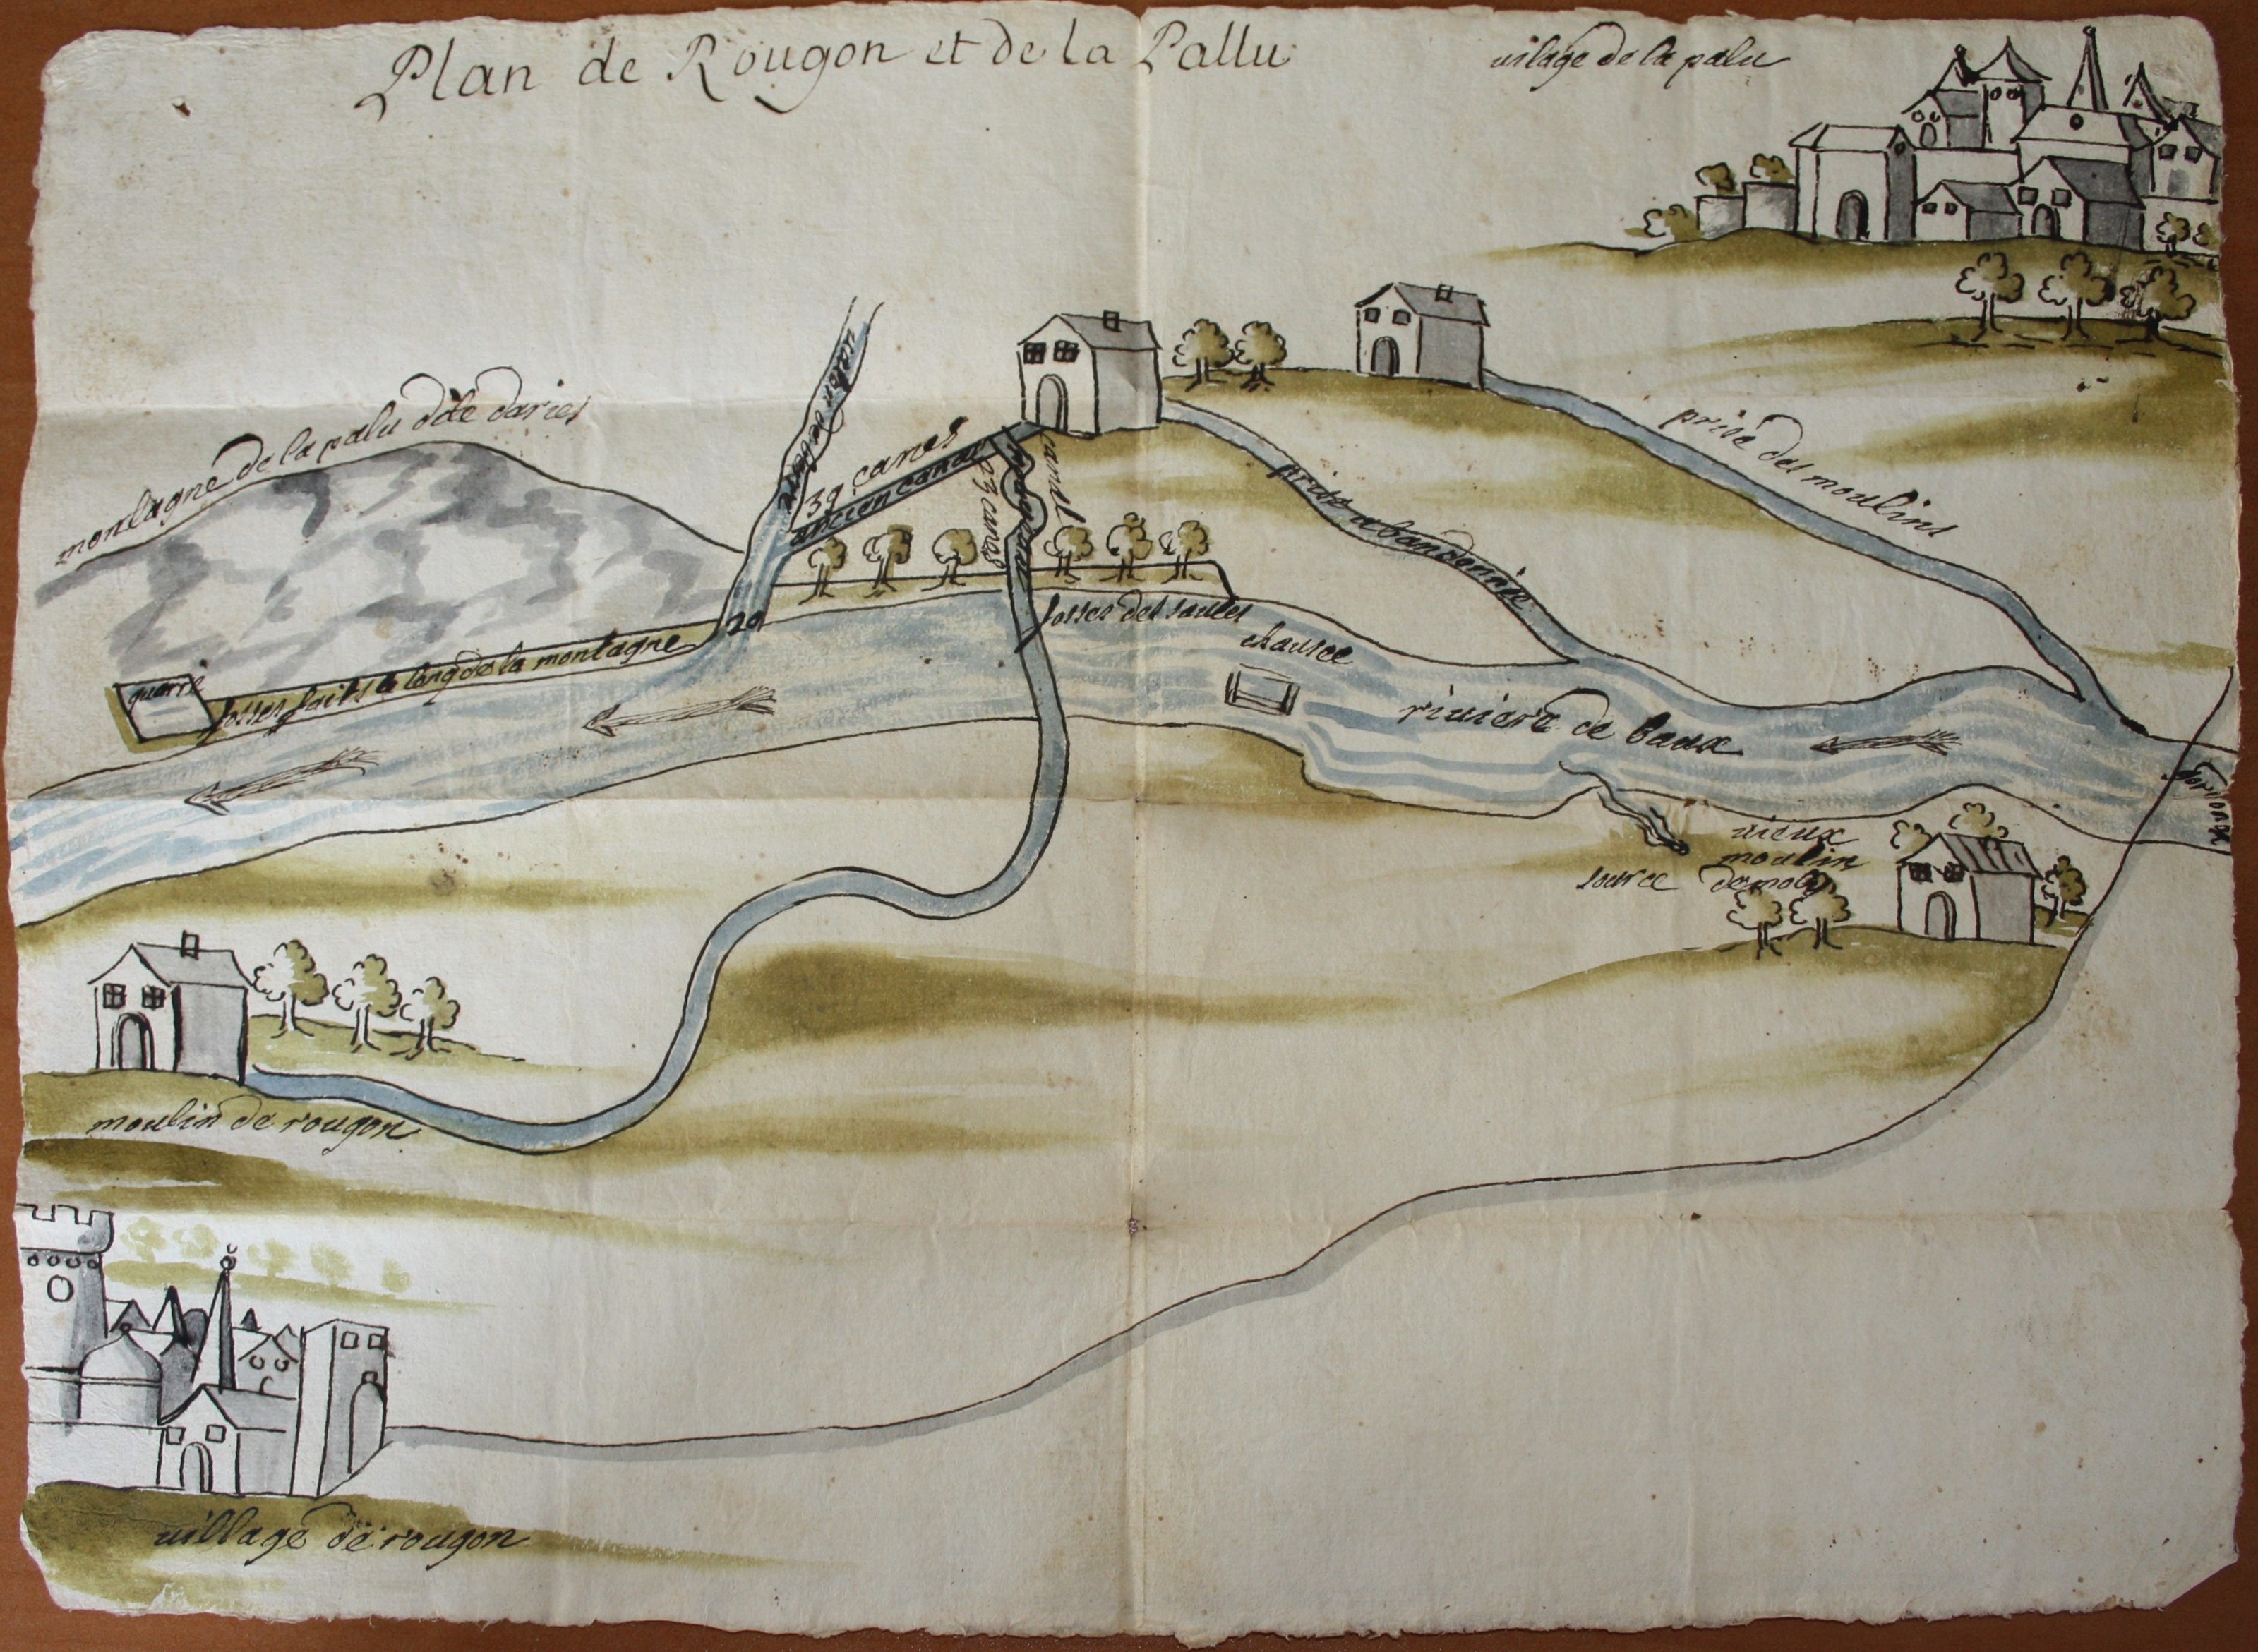 Plan de Rougon et de la Pallu
vilage de la palu
montagne de la palu dite daries
39 canes
ancien canal
23 canes
canal
prise abandonnée
prise des moulins
fosses des saules
chausee
riviere de baux
20
fosses faits le long de la montagne
vieux
moulin
source
moulin de rougon
village de rougon